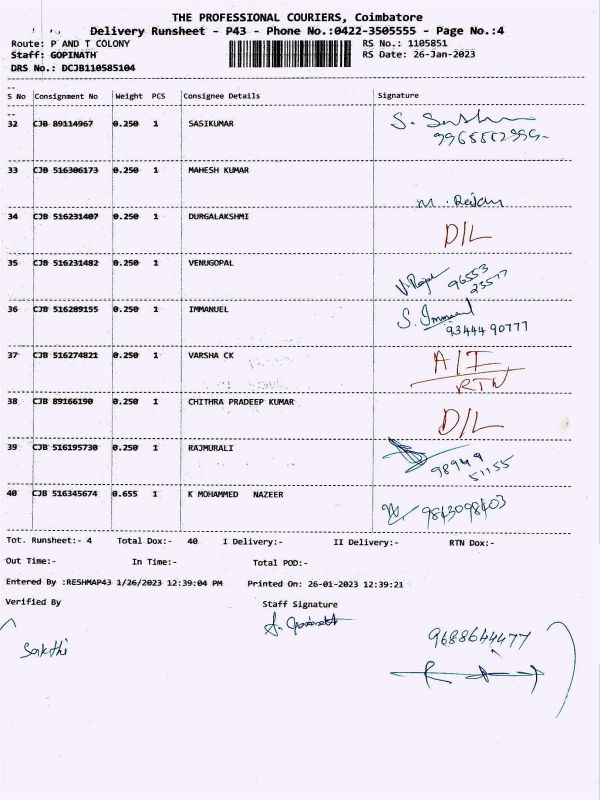 THE PROFESSIONAL COURIERS, Coimbatore
Delivery Runsheet - P43 - Phone No.:0422-3505555 - Page No.:4
Route: P AND T COLONY RS No.: 1105851
Staff: GOPINATH RS Date: 26-Jan-2023
DRS No.: DCJB110585104
S No Consignment No Weight PCS Consignee Details Signature
32 CJB 89114967 0.250 1 SASIKUMAR S.
33 CJB 516306173 0.250 1 MAHESH KUMAR M.
34 CJB 516231407 0.250 1 DURGALAKSHMI D/L
35 CJB 516231482 0.250 1 VENUGOPAL 96553
23577
36 CJB 516289155 0.250 1 IMMANUEL S. Immanuel
93444 90777
37 CJB 516274821 0.250 1 VARSHA CK A/I
RTN
38 CJB 89166190 0.250 1 CHITHRA PRADEEP KUMAR D/L
39 CJB 516195730 0.250 1 RAJMURALI 98949
51155
40 CJB 516345674 0.655 1 K MOHAMMED NAZEER 9843098403
Tot. Runsheet:- 4 Total Dox:- 40 I Delivery:- II Delivery:- RTN Dox:-
Out Time:- In Time:- Total POD:-
Entered By :RESHMAP43 1/26/2023 12:39:04 PM Printed On: 26-01-2023 12:39:21
Verified By Staff Signature
Sakthi 9688644477